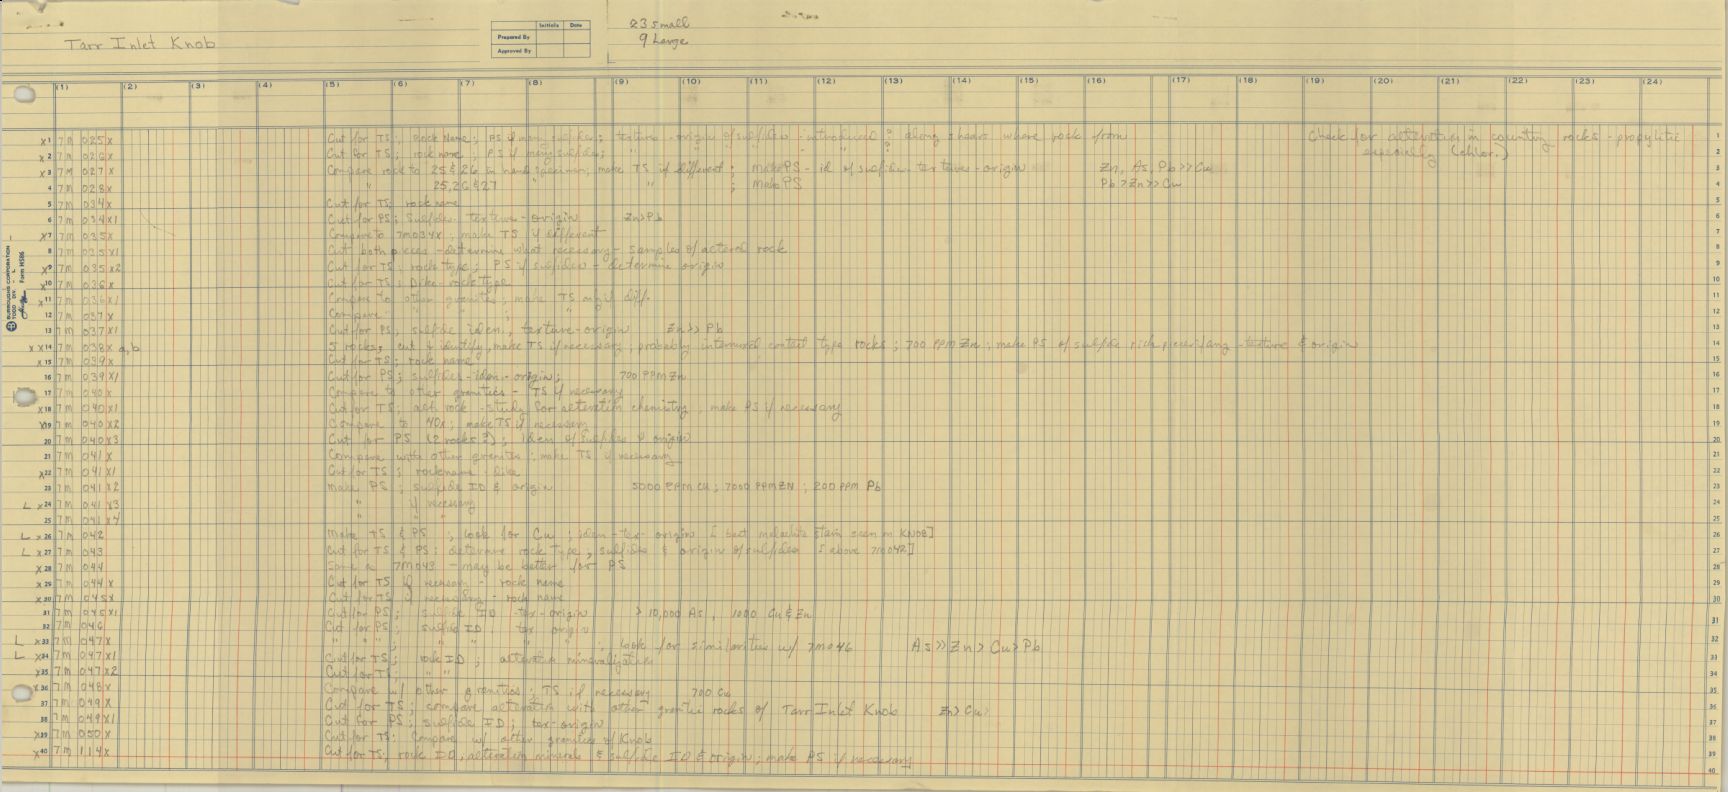 23 small
9 Large
Tarr Inlet Knob
Initials Date
Prepared By
Approved By
(1) (2) (3) (4) (5) (6) (7) (8) (9) (10) (11) (12) (13) (14) (15) (16) (17) (18) (19) (20) (21) (22) (23) (24)
x1 7m 025x Cut for TS; Rock Name; PS if many sulfides; texture - origin of sulfides - introduced? along shears where rock from Check for alteration in country rocks - propylitic 1
x2 7m 026x Cut for TS; rock name; PS if many sulfides; " " " " ? especially (chlor.) 2
x3 7m 027x Compare rock to 25 & 26 in hand specimen, make TS if different; make PS - id of sulfides texture - origin Zn, As, Pb >> Cu 3
4 7m 028x " 25, 26 & 27 " ; make PS Pb > Zn >> Cu 4
5 7m 034x Cut for TS; rock name 5
6 7m 034x1 Cut for PS; Sulfides - texture - origin Zn > Pb 6
x7 7m 035x Compare to 7m034x; make TS if different 7
8 7m 035x1 Cut both pieces - determine what necessary - samples of altered rock 8
x9 7m 035x2 Cut for TS; rock type; PS if sulfides - determine origin 9
x10 7m 036x Cut for TS; Dike - rock type 10
x11 7m 036x1 Compare to other granitics; make TS only if diff. 11
12 7m 037x Compare " " ; " 12
13 7m 037x1 Cut for PS, sulfide iden, texture - origin Zn >> Pb 13
x x14 7m 038x a,b 5 rocks, cut & identify, make TS if necessary, probably internal contact type rocks; 700 PPM Zn; make PS of sulfide rich piece if any - texture & origin 14
x15 7m 039x Cut for TS; rock name 15
16 7m 039x1 Cut for PS; sulfides - iden - origin; 700 PPM Zn 16
17 7m 040x Compare to other granitics - TS if necessary 17
x18 7m 040x1 Cut for TS; alt. rock - study for alteration chemistry, make PS if necessary 18
x19 7m 040x2 Compare to 40x; make TS if necessary 19
20 7m 040x3 Cut for PS (2 rocks?); iden of sulfides & origin 20
21 7m 041x Compare with other granitics; make TS if necessary 21
x22 7m 041x1 Cut for TS; rock name - dike 22
23 7m 041x2 Make PS; sulfide ID & origin 5000 PPM Cu; 7000 PPM ZN; 200 PPM Pb 23
L x24 7m 041x3 " if necessary 24
25 7m 041x4 " " 25
L x26 7m 042 Make TS & PS; look for Cu; iden - tex - origin [best malachite stain seen on KNOB] 26
L x27 7m 043 Cut for TS & PS; determine rock type, sulfides & origin of sulfides [above 7m042] 27
x28 7m 044 Same as 7M043 - may be better for PS 28
x29 7m 044x Cut for TS if necessary - rock name 29
x30 7m 045x Cut for TS if necessary - rock name 30
31 7m 045x1 Cut for PS; sulfide ID - tex - origin > 10,000 As, 1000 Cu & Zn 31
32 7m 046 Cut for PS; sulfide ID tex origin 32
L x33 7m 047x " " " ; " " " " ; look for similarities w/ 7m046 As >> Zn > Cu > Pb
L x34 7m 047x1 Cut for TS; rock ID; alteration mineralization 33
x35 7m 047x2 Cut for TS; " " 34
x36 7m 048x Compare w/ other granitics; TS if necessary 700 Cu 35
37 7m 049x Cut for TS; compare alteration with other granitic rocks of Tarr Inlet Knob Zn > Cu 37
38 7m 049x1 Cut for PS; sulfide ID; tex - origin
x39 7m 050x Cut for TS: Compare w/ other granitics of Knob 38
x40 7m 114x Cut for TS; rock ID, alteration minerals & sulfide ID & origin; make PS if necessary 39
40
BURROUGHS CORPORATION
TODD DIV.
Form H586